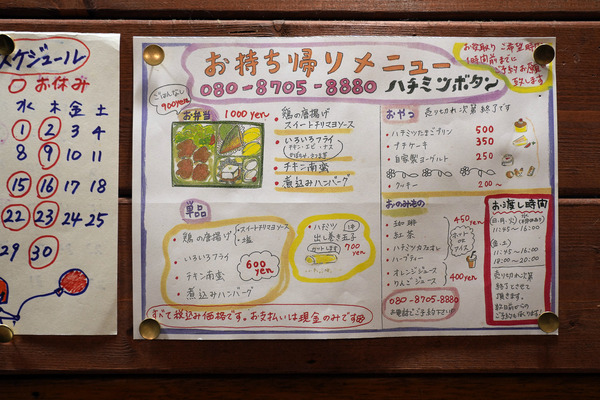 スケジュール
お休み
水 木 金 土
1 2 3 4
8 9 10 11
15 16 17 18
22 23 24 25
29 30
お持ち帰りメニュー
080-8705-8880 ハチミツボタン
お受取りご希望時間
1時間前までに
ご予約お願い
致します
ごはんなし
900yen
お弁当 1000yen
・鶏の唐揚げ
スイートチリマヨソース
・いろいろフライ
・チキン南蛮
・煮込みハンバーグ
おやつ 売り切れ次第終了です
・ハチミツたまごプリン 500
・プチケーキ 350
・自家製ヨーグルト 250
・クッキー 200〜
単品
・鶏の唐揚げ
・スイートチリマヨソース
・塩
・いろいろフライ
・チキン南蛮
・煮込みハンバーグ
600yen
・ハチミツ
出し巻き玉子
700yen
おのみもの
・珈琲
・紅茶
・ハーブティー
・オレンジジュース
・りんごジュース
450yen
ホット
or
アイス
400yen
080-8705-8880
お電話でご予約下さい!!
お渡し時間
11:45〜16:00
11:45〜16:00
18:00〜20:00
売り切れ次第
終了とさせて
頂きます。
前日からの
ご予約も承ります!
すべて税込み価格です。お支払いは現金のみです